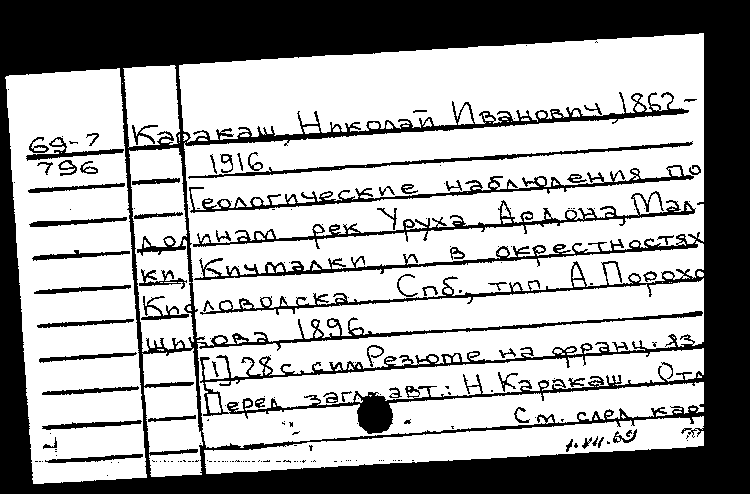 69-7 Каракаш, Николай Иванович, 1862-
796 1916.
Геологические наблюдения по
долинам рек Уруха, Ардона, Мал-
ки, Кичмалки, и в окрестностях
Кисловодска. Спб., тип. А. Порохо
щикова, 1896.
[1], 28 с. с илл Резюме на франц. яз.
Перед загл. авт.: Н. Каракаш. Отд
См. след. кар
1.VII.69